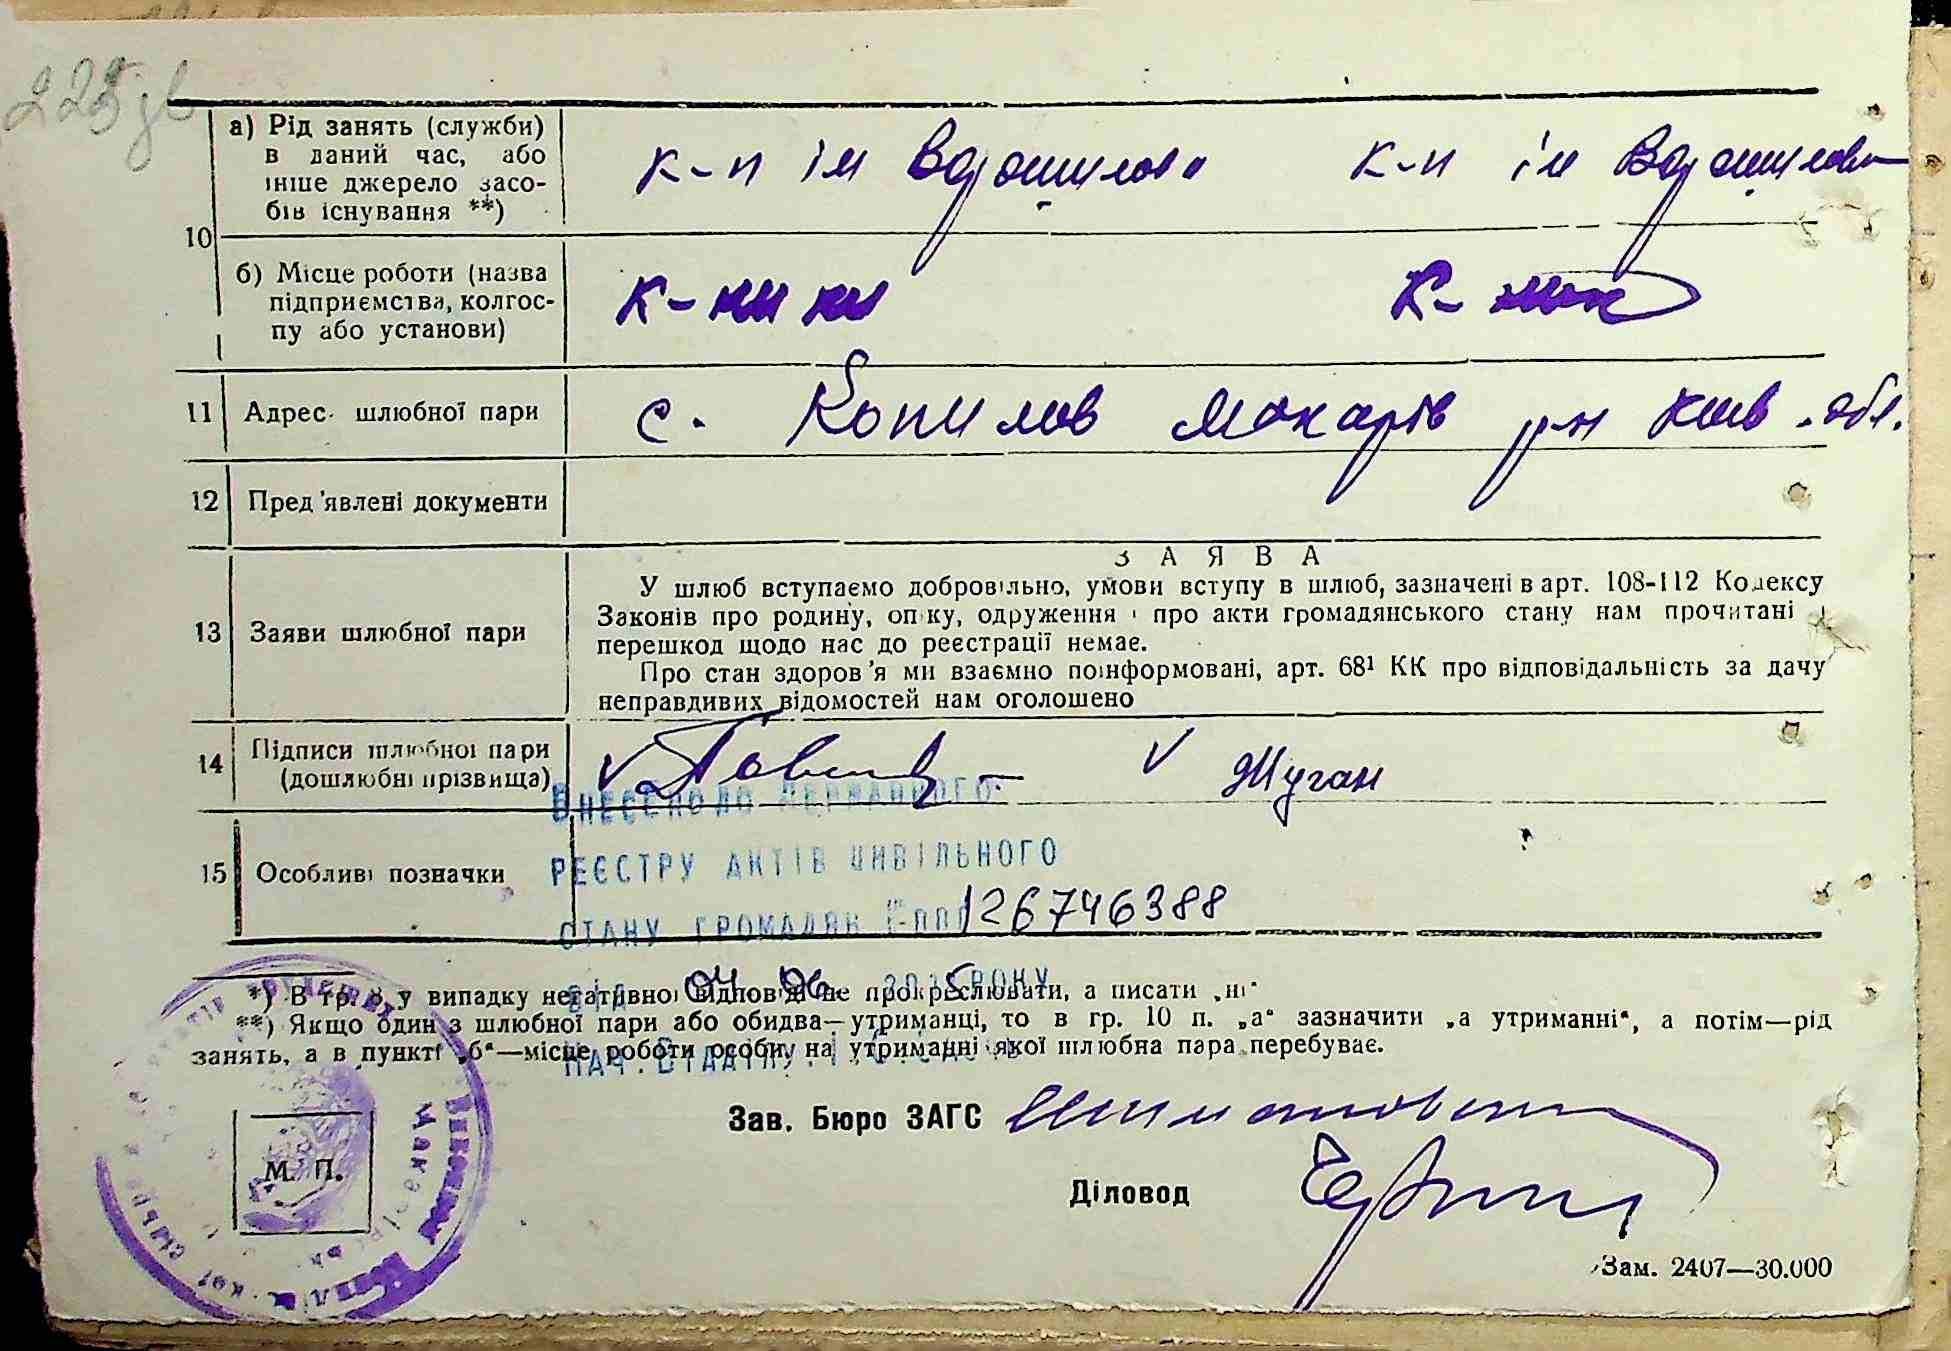 225 зв
а) Рід занять (служби)
в даний час, або
інше джерело засо-
бів існування **)
к-п ім Ворошилова к-п ім Ворошилова
10
б) Місце роботи (назва
підприємства, колгос-
пу або установи)
к-ники к-ник
11 Адрес шлюбної пари с. Копилов Макарів р-н Київ. обл.
12 Пред'явлені документи
ЗАЯВА
У шлюб вступаємо добровільно, умови вступу в шлюб, зазначені в арт. 108-112 Кодексу
Законів про родину, опіку, одруження і про акти громадянського стану нам прочитані і
перешкод щодо нас до реєстрації немає.
13 Заяви шлюбної пари
Про стан здоров'я ми взаємно поінформовані, арт. 68¹ КК про відповідальність за дачу
неправдивих відомостей нам оголошено
14 Підписи шлюбної пари
(дошлюбні прізвища)
V V Жуган
Внесено до Державного
реєстру актів цивільного
15 Особливі позначки
стану громадян 126746388
від 04 06. 2015 року
*) В гр. 8 у випадку негативної відповіді не прокреслювати, а писати „ні"
**) Якщо один з шлюбної пари або обидва—утриманці, то в гр. 10 п. „а" зазначити „а утриманні", а потім—рід
занять, а в пункті „б"—місце роботи особи, на утриманні якої шлюбна пара перебуває.
Нач. відділу
Зав. Бюро ЗАГС
М. П.
Діловод
Зам. 2407—30.000